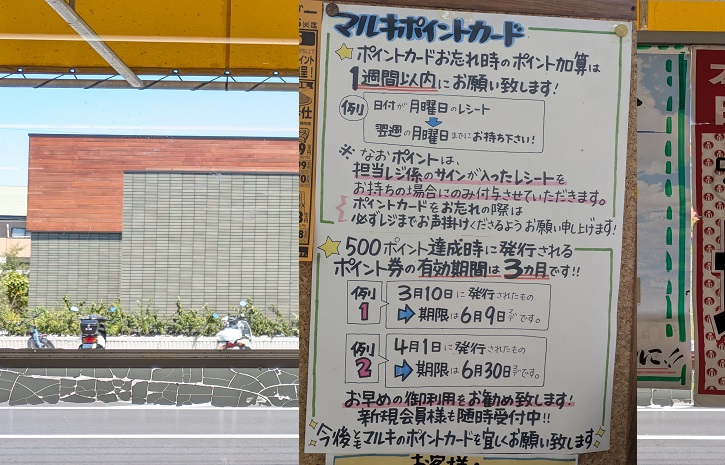 マルキポイントカード
ポイントカードお忘れ時のポイント加算は
1週間以内にお願い致します!
例) 日付が月曜日のレシート
翌週の月曜日までにお持ち下さい!
※ なおポイントは、
担当レジ係のサインが入ったレシートを
お持ちの場合にのみ付与させていただきます。
ポイントカードをお忘れの際は
必ずレジまでお声掛けくださるようお願い申し上げます!
500ポイント達成時に発行される
ポイント券の有効期間は3カ月です!!
例1 3月10日に発行されたもの
期限は6月9日までです。
例2 4月1日に発行されたもの
期限は6月30日までです。
お早めの御利用をお勧め致します!
新規会員様も随時受付中!!
今後ともマルキのポイントカードを宜しくお願い致します
お客様
に!!